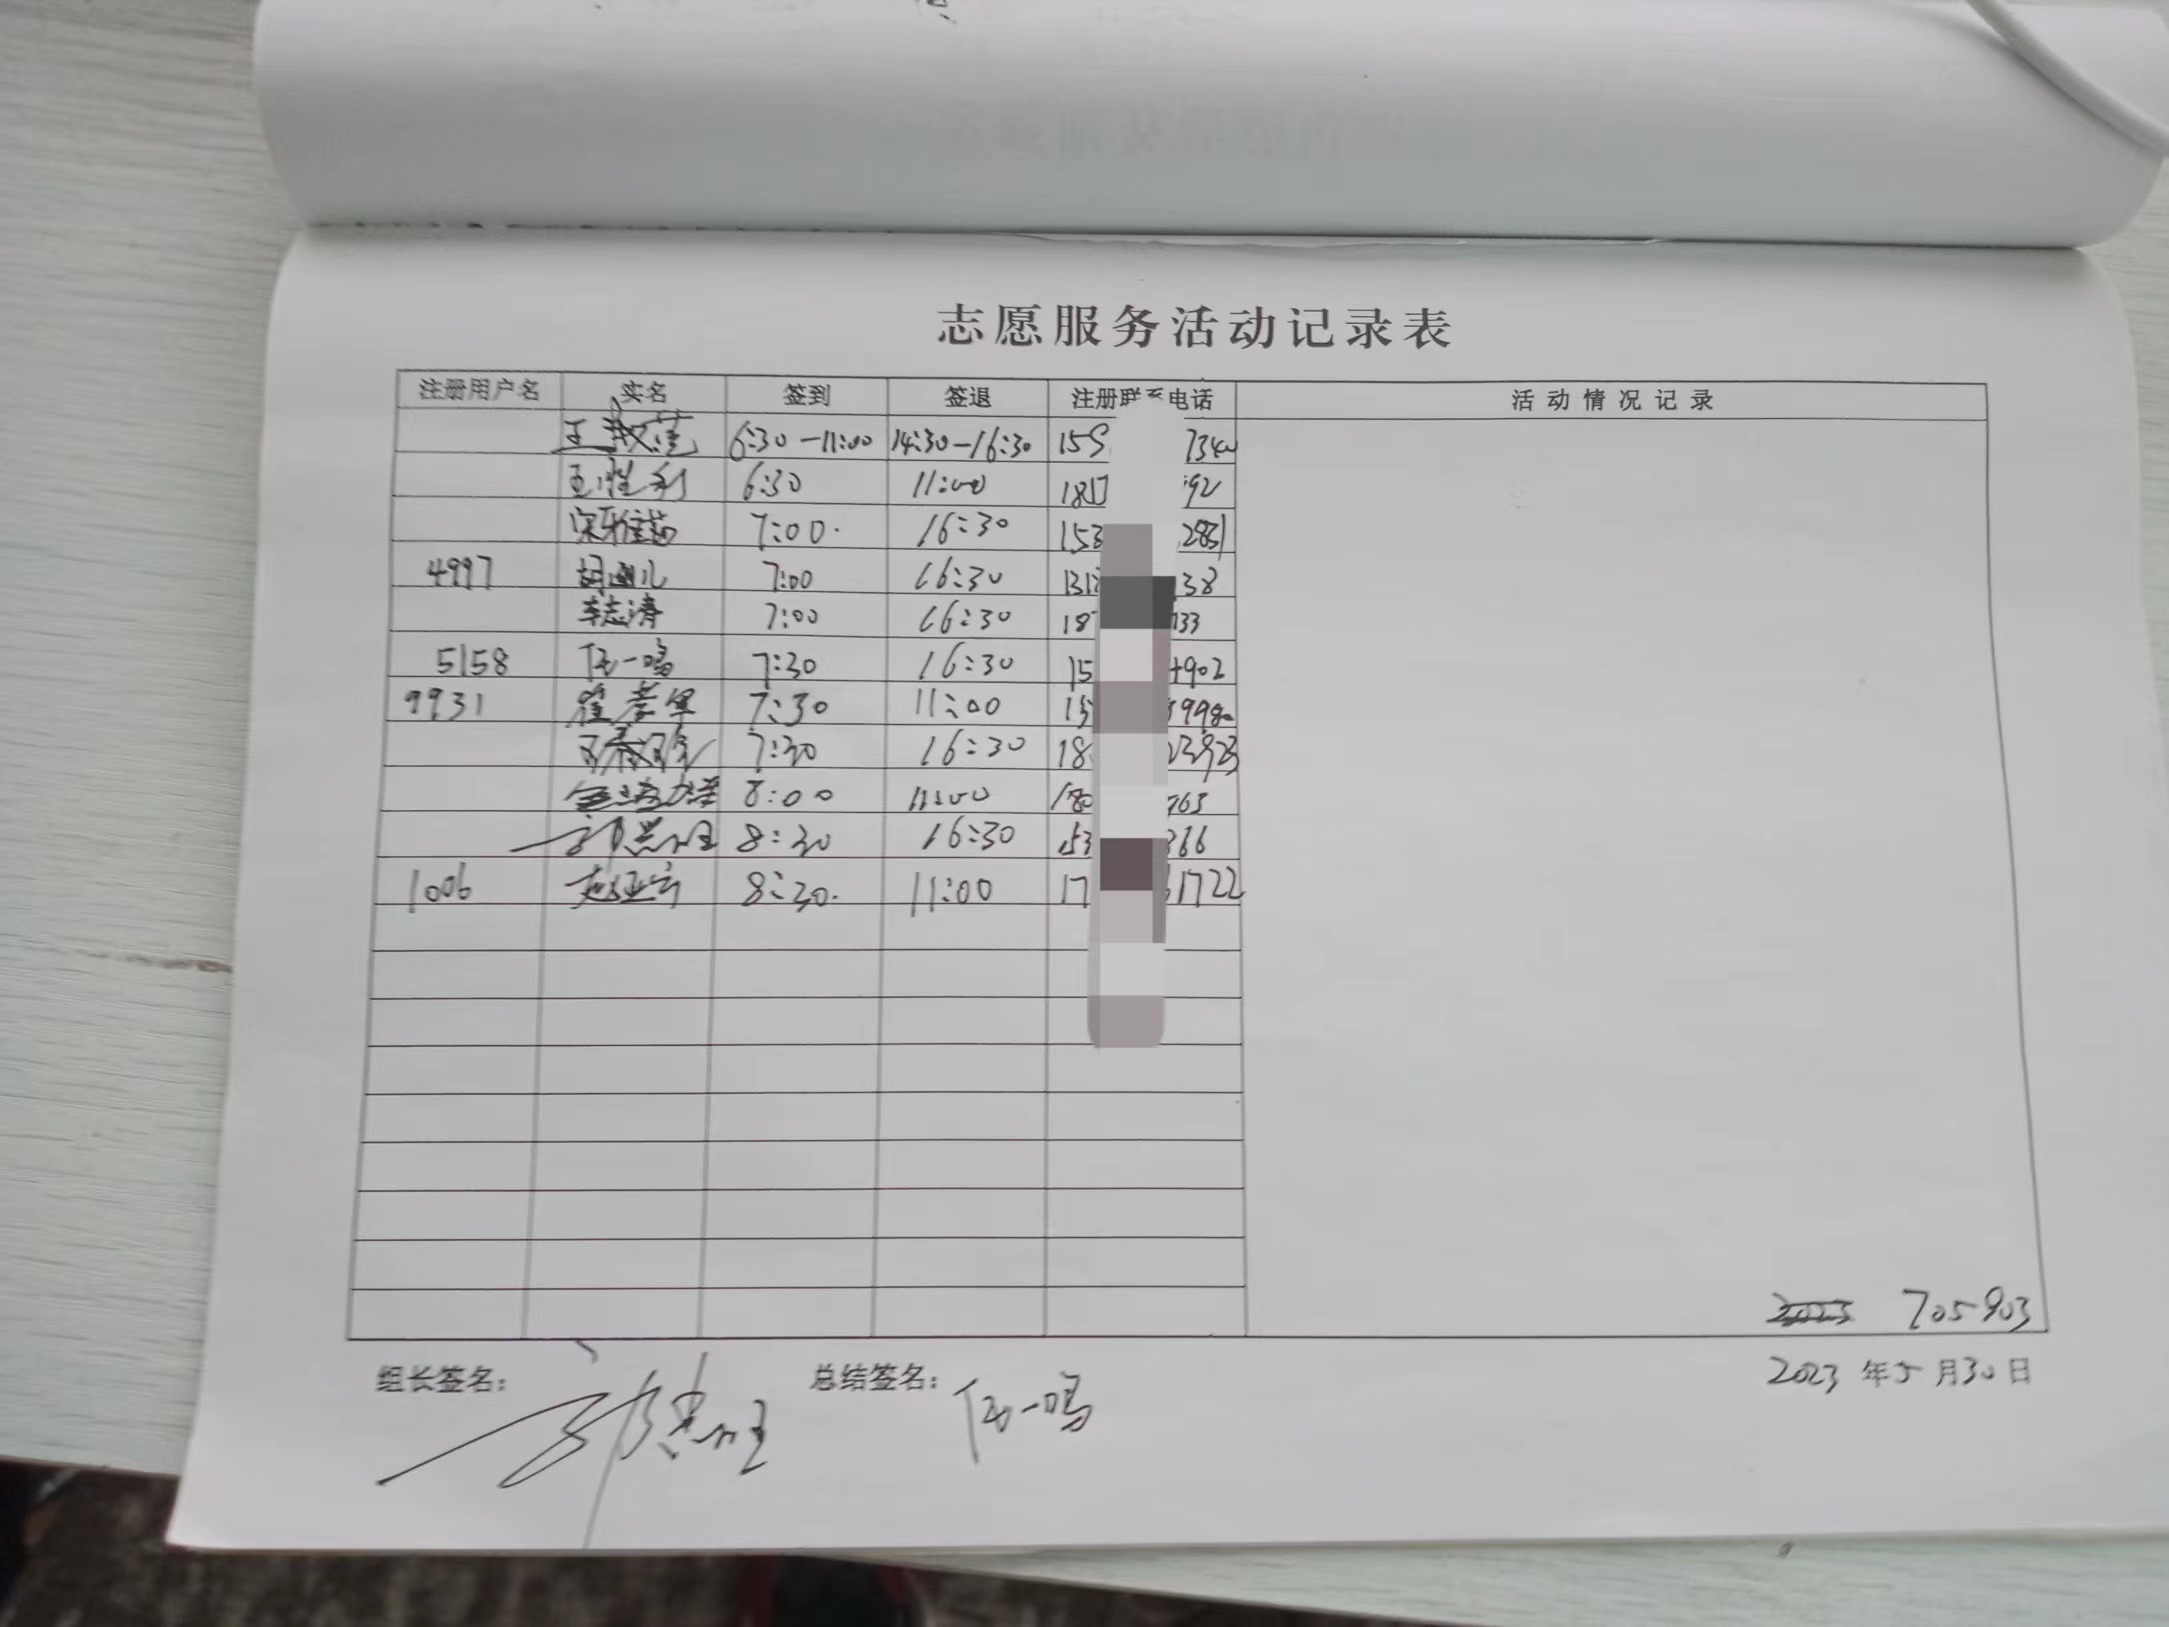 志愿服务活动记录表
注册用户名 实名 签到 签退 注册联系电话 活动情况记录
王 6:30-11:00 14:30-16:30 159 734
王胜利 6:30 11:00 181 92
7:00 16:30 153 2831
4997 胡 儿 7:00 16:30 131 38
车志涛 7:00 16:30 18 733
5158 任一鸣 7:30 16:30 15 4902
9931 崔孝军 7:30 11:00 15 998
7:30 16:30 18 23923
8:00 11:00 180 763
8:30 16:30 153 366
1006 赵亚宾 8:30. 11:00 17 61722
705903
组长签名: 总结签名: 任一鸣 2023年5月30日